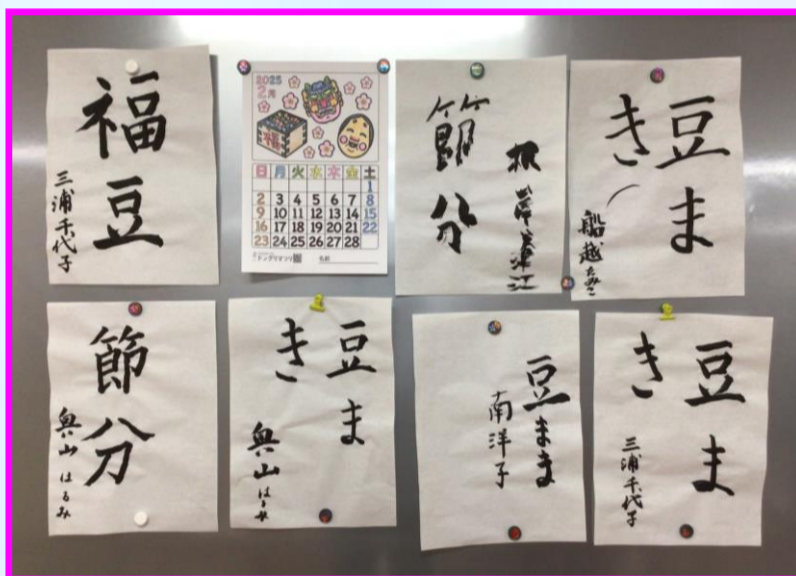 福豆
三浦千代子
2025
2月
福
日 月 火 水 木 金 土
1
2 3 4 5 6 7 8
9 10 11 12 13 14 15
16 17 18 19 20 21 22
23 24 25 26 27 28
名前
節分
豆ま
き
船越たみこ
節分
奥山はるみ
豆ま
き
奥山はるみ
豆まま
南洋子
豆ま
き
三浦千代子